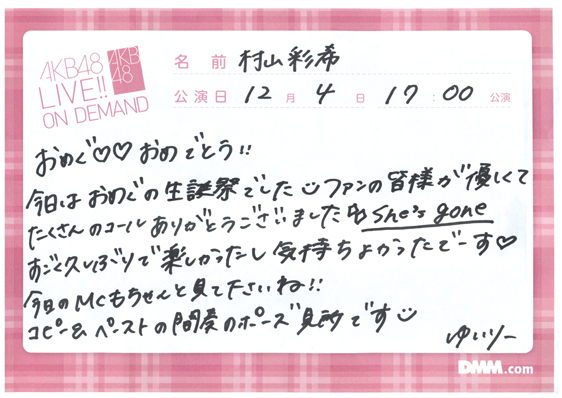 AKB48
LIVE!!
ON DEMAND
AKB
48
名前 村山彩希
公演日 12月4日 17:00公演
おめぐ♡♡おめでとう!!
今日はおめぐの生誕祭でした ファンの皆様が優しくて
たくさんのコールありがとうございました She's gone
すごく久しぶりで楽しかったし気持ちよかったでーす♡
今日のMCもちゃんと見て下さいね!!
コピー&ペーストの間奏のポーズ見所です
ゆいりー
DMM.com